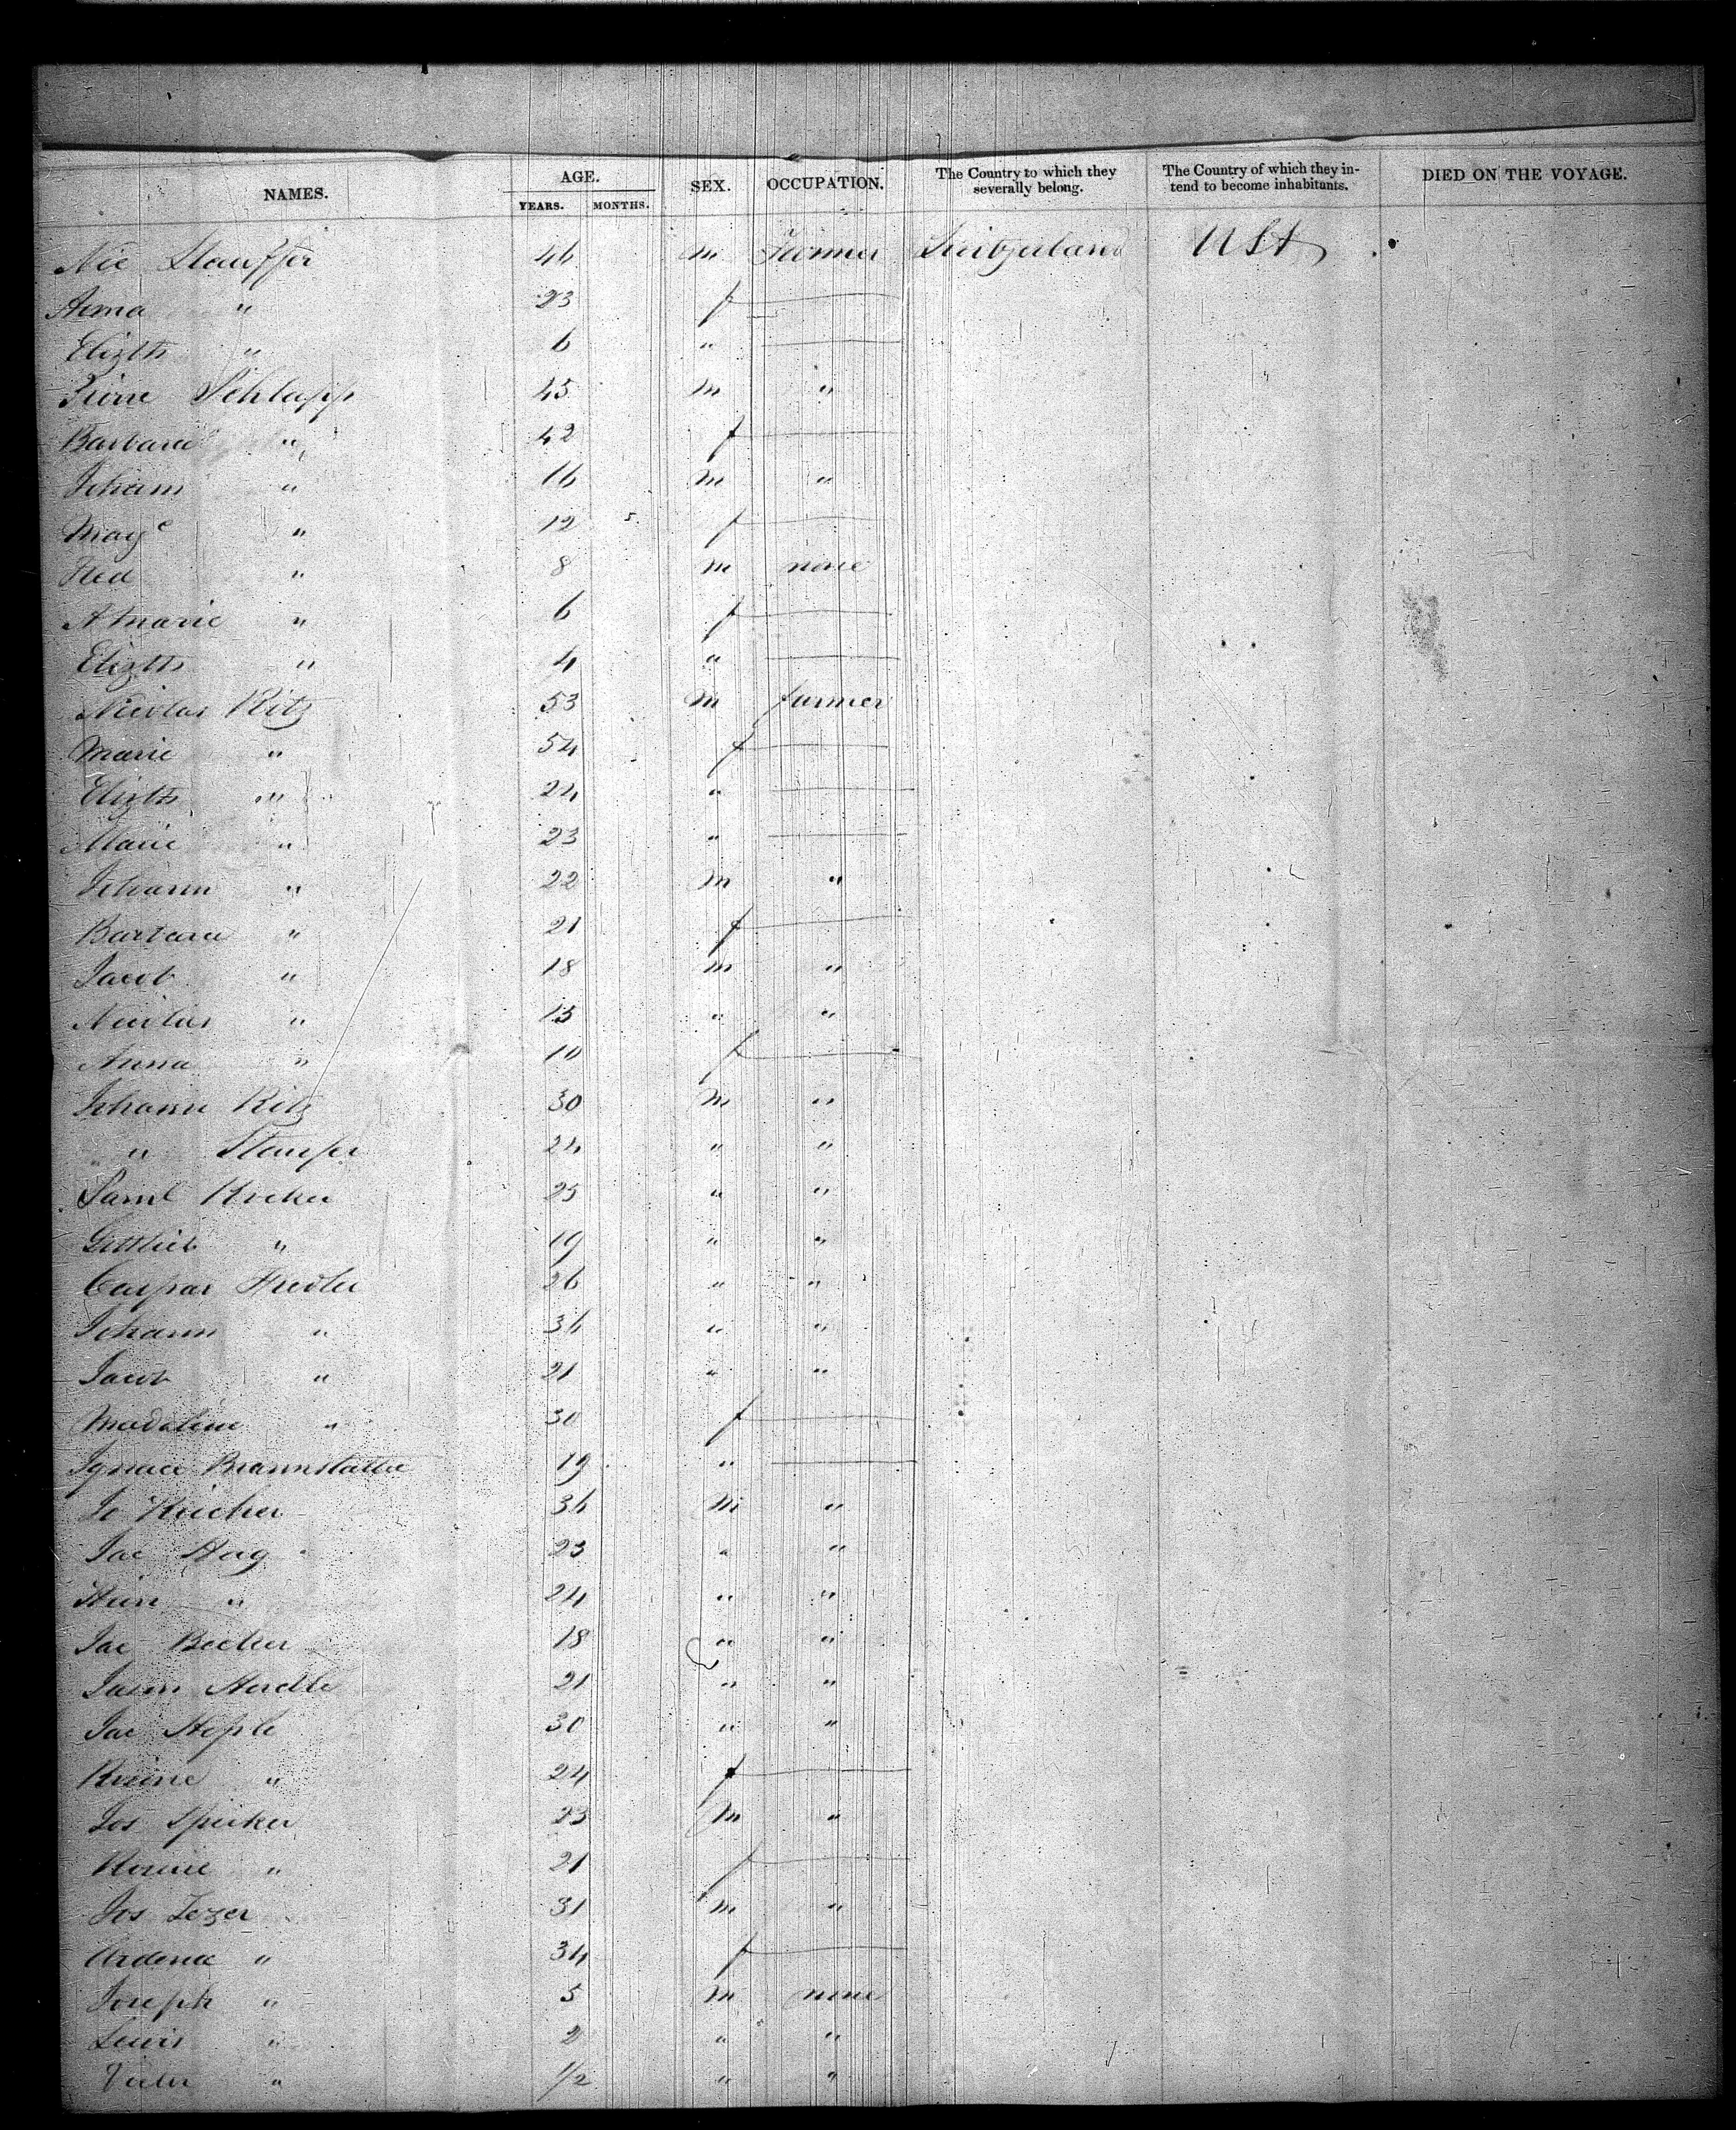 NAMES. AGE. SEX. OCCUPATION. The Country to which they severally belong. The Country of which they intend to become inhabitants. DIED ON THE VOYAGE.
YEARS. MONTHS.
Nic Stauffer 46 m Farmer Switzerland USA
Anna " 23 f
Elizth " 6 "
Pierre Schlapp 45 m "
Barbara " 42 f
Johann " 16 m "
Mag " 12 f
Fred " 8 m none
A Marie " 6 f
Elizth " 4 "
Nicolas Ritz 53 m farmer
Marie " 54 f
Elizth " 24 "
Marie " 23 "
Johann " 22 m "
Barbara " 21 f
Jacob " 18 m "
Nicolas " 15 " "
Anna " 10 f
Johann Ritz 30 m "
" Staufer 24 " "
Saml 25 " "
Gottlieb " 19 " "
Caspar 26 " "
Johann " 34 " "
Jacob " 21 " "
Madeline " 30 f
Ignace 19 "
34 m "
Jac 23 " "
" 24 " "
Jac Becker 18 " "
21 " "
Jac 30 " "
" 24 f
Jos Specker 23 m "
" 21 f
Jos Zezer 31 m "
" 34 f
Joseph " 5 m none
Lewis " 2 " "
" 1/2 " "